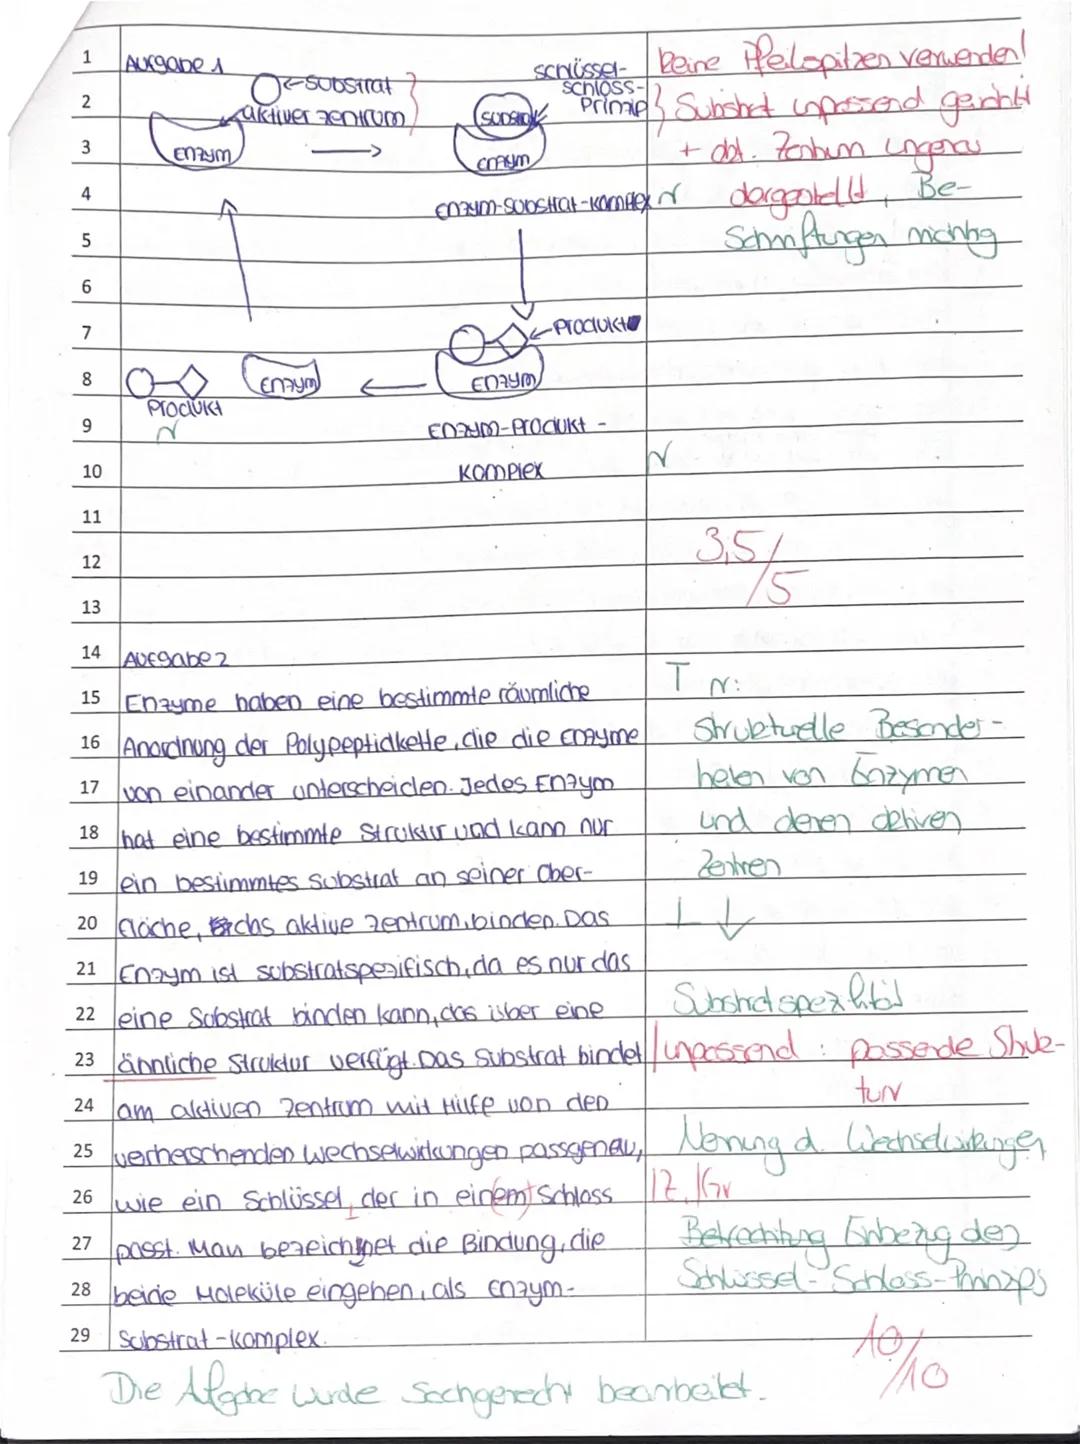 1 Aufgabe 1 keine Pfeilspitzen verwenden!
Substrat schlüssel-
schloss-
Prinzip
2 aktiver zentrum Substrat unpassend gewählt
3 Enzym Enzym + akt. Zentrum ungenau
4 Enzym-Substrat-Komplex dargestellt, Be-
5 Schriftungen richtig
6
7 Produkt
8 Enzym Enzym
Produkt
9 Enzym-Produkt-
10 Komplex
11
12 3,5/5
13
14 Aufgabe 2
15 Enzyme haben eine bestimmte räumliche
16 Anordnung der Polypeptidkette, die die Enzyme strukturelle Besonder-
17 von einander unterscheiden. Jedes Enzym heiten von Enzymen
18 hat eine bestimmte Struktur und kann nur und deren aktiven
19 ein bestimmtes Substrat an seiner Ober- Zentren
20 fläche, das aktive Zentrum, binden. Das
21 Enzym ist substratspezifisch, da es nur das
22 eine Substrat binden kann, das über eine Substratspezifität
23 ähnliche Struktur verfügt. Das Substrat bindet unpassend: passende Struk-
tur
24 am aktiven Zentrum mit Hilfe von den
25 verherschenden Wechselwirkungen passgenau, Nennung d. Wechselwirkungen
26 wie ein Schlüssel, der in einem Schloss Z. Gr
27 passt. Man bezeichnet die Bindung, die Einbezug des
28 beide Moleküle eingehen, als Enzym- Schlüssel-Schloss-Prinzips
29 Substrat-Komplex.
10/10
Die Afgabe wurde sachgerecht bearbeitet.